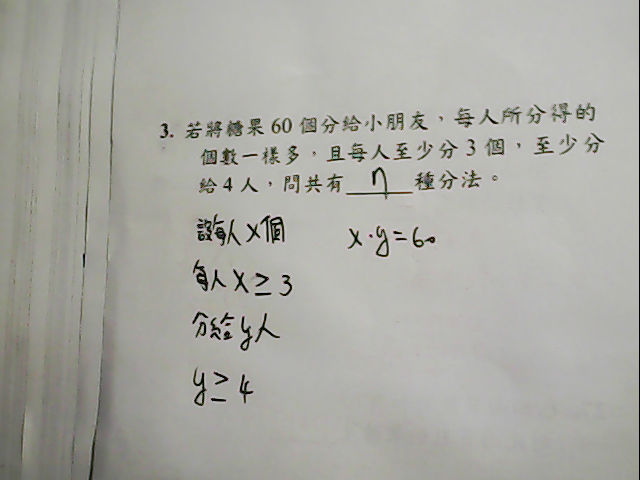 3. 若將糖果 60 個分給小朋友，每人所分得的
個數一樣多，且每人至少分 3 個，至少分
給 4 人，問共有 η 種分法。
設每人 x 個
x·y=60
每人 x ≥ 3
分給 y 人
y ≥ 4